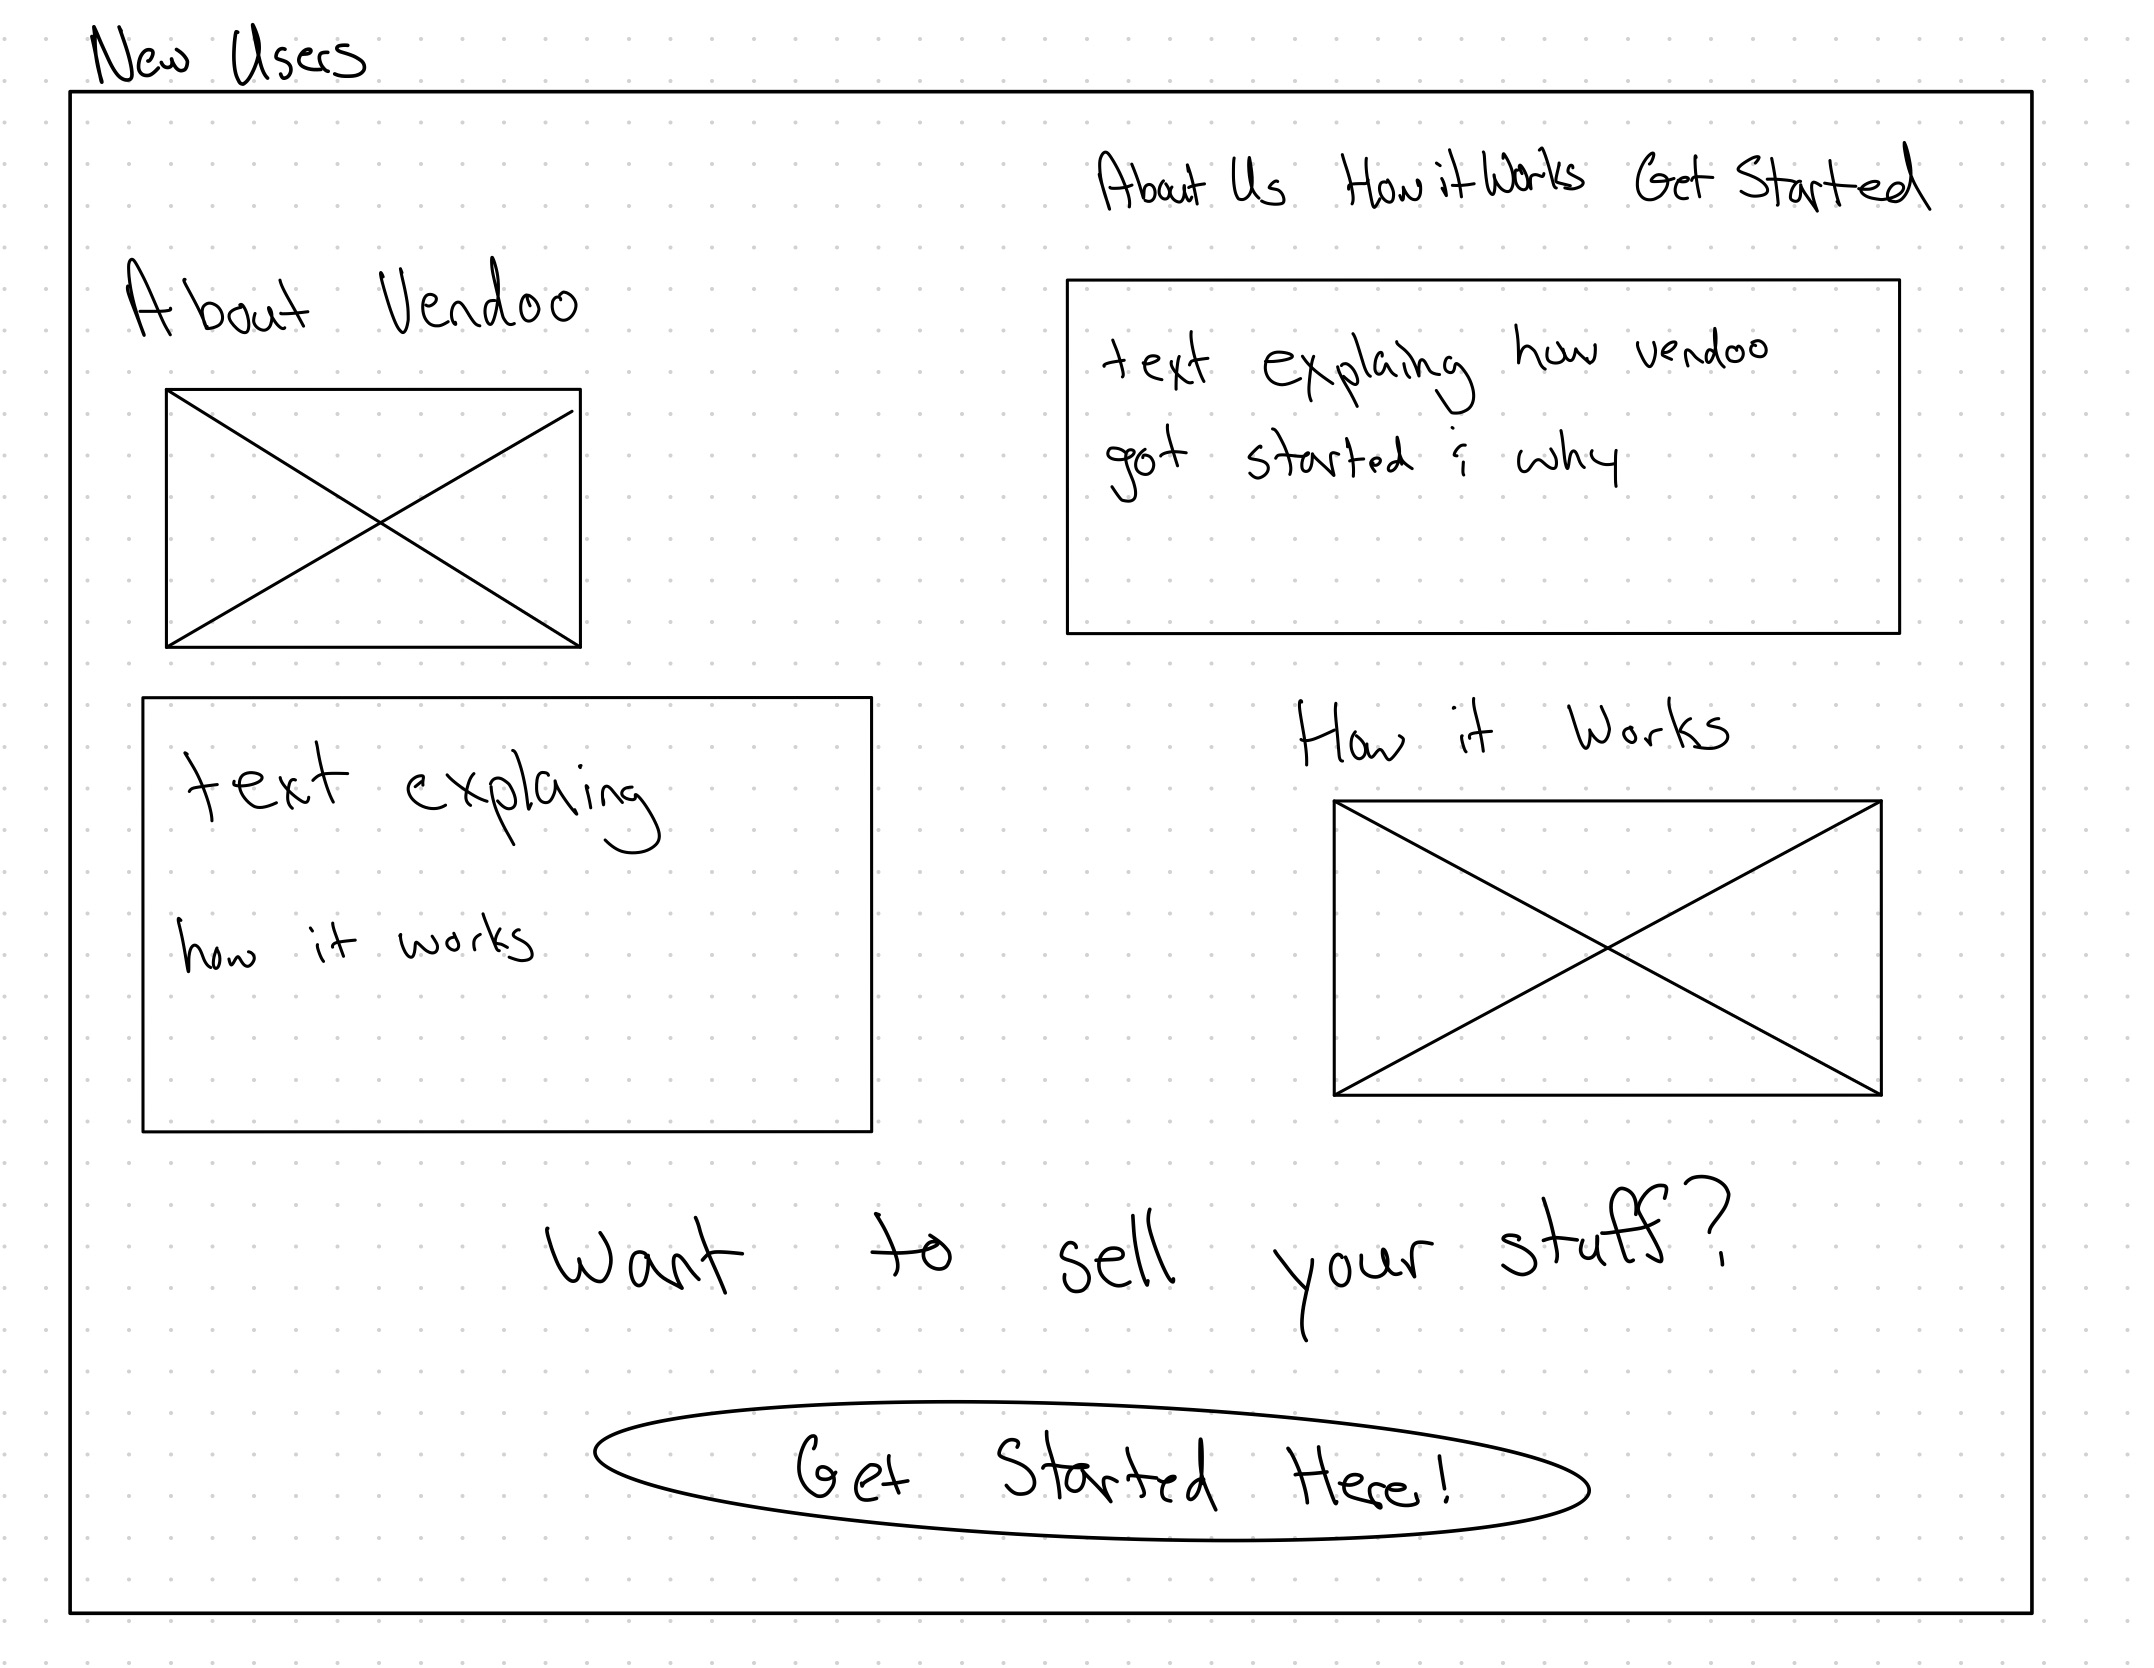 New Users
About Us How it Works Get Started
About Vendoo
text explaing how vendoo
got started i why
How it Works
text explaing
how it works
Want to sell your stuff?
Get Started Here!